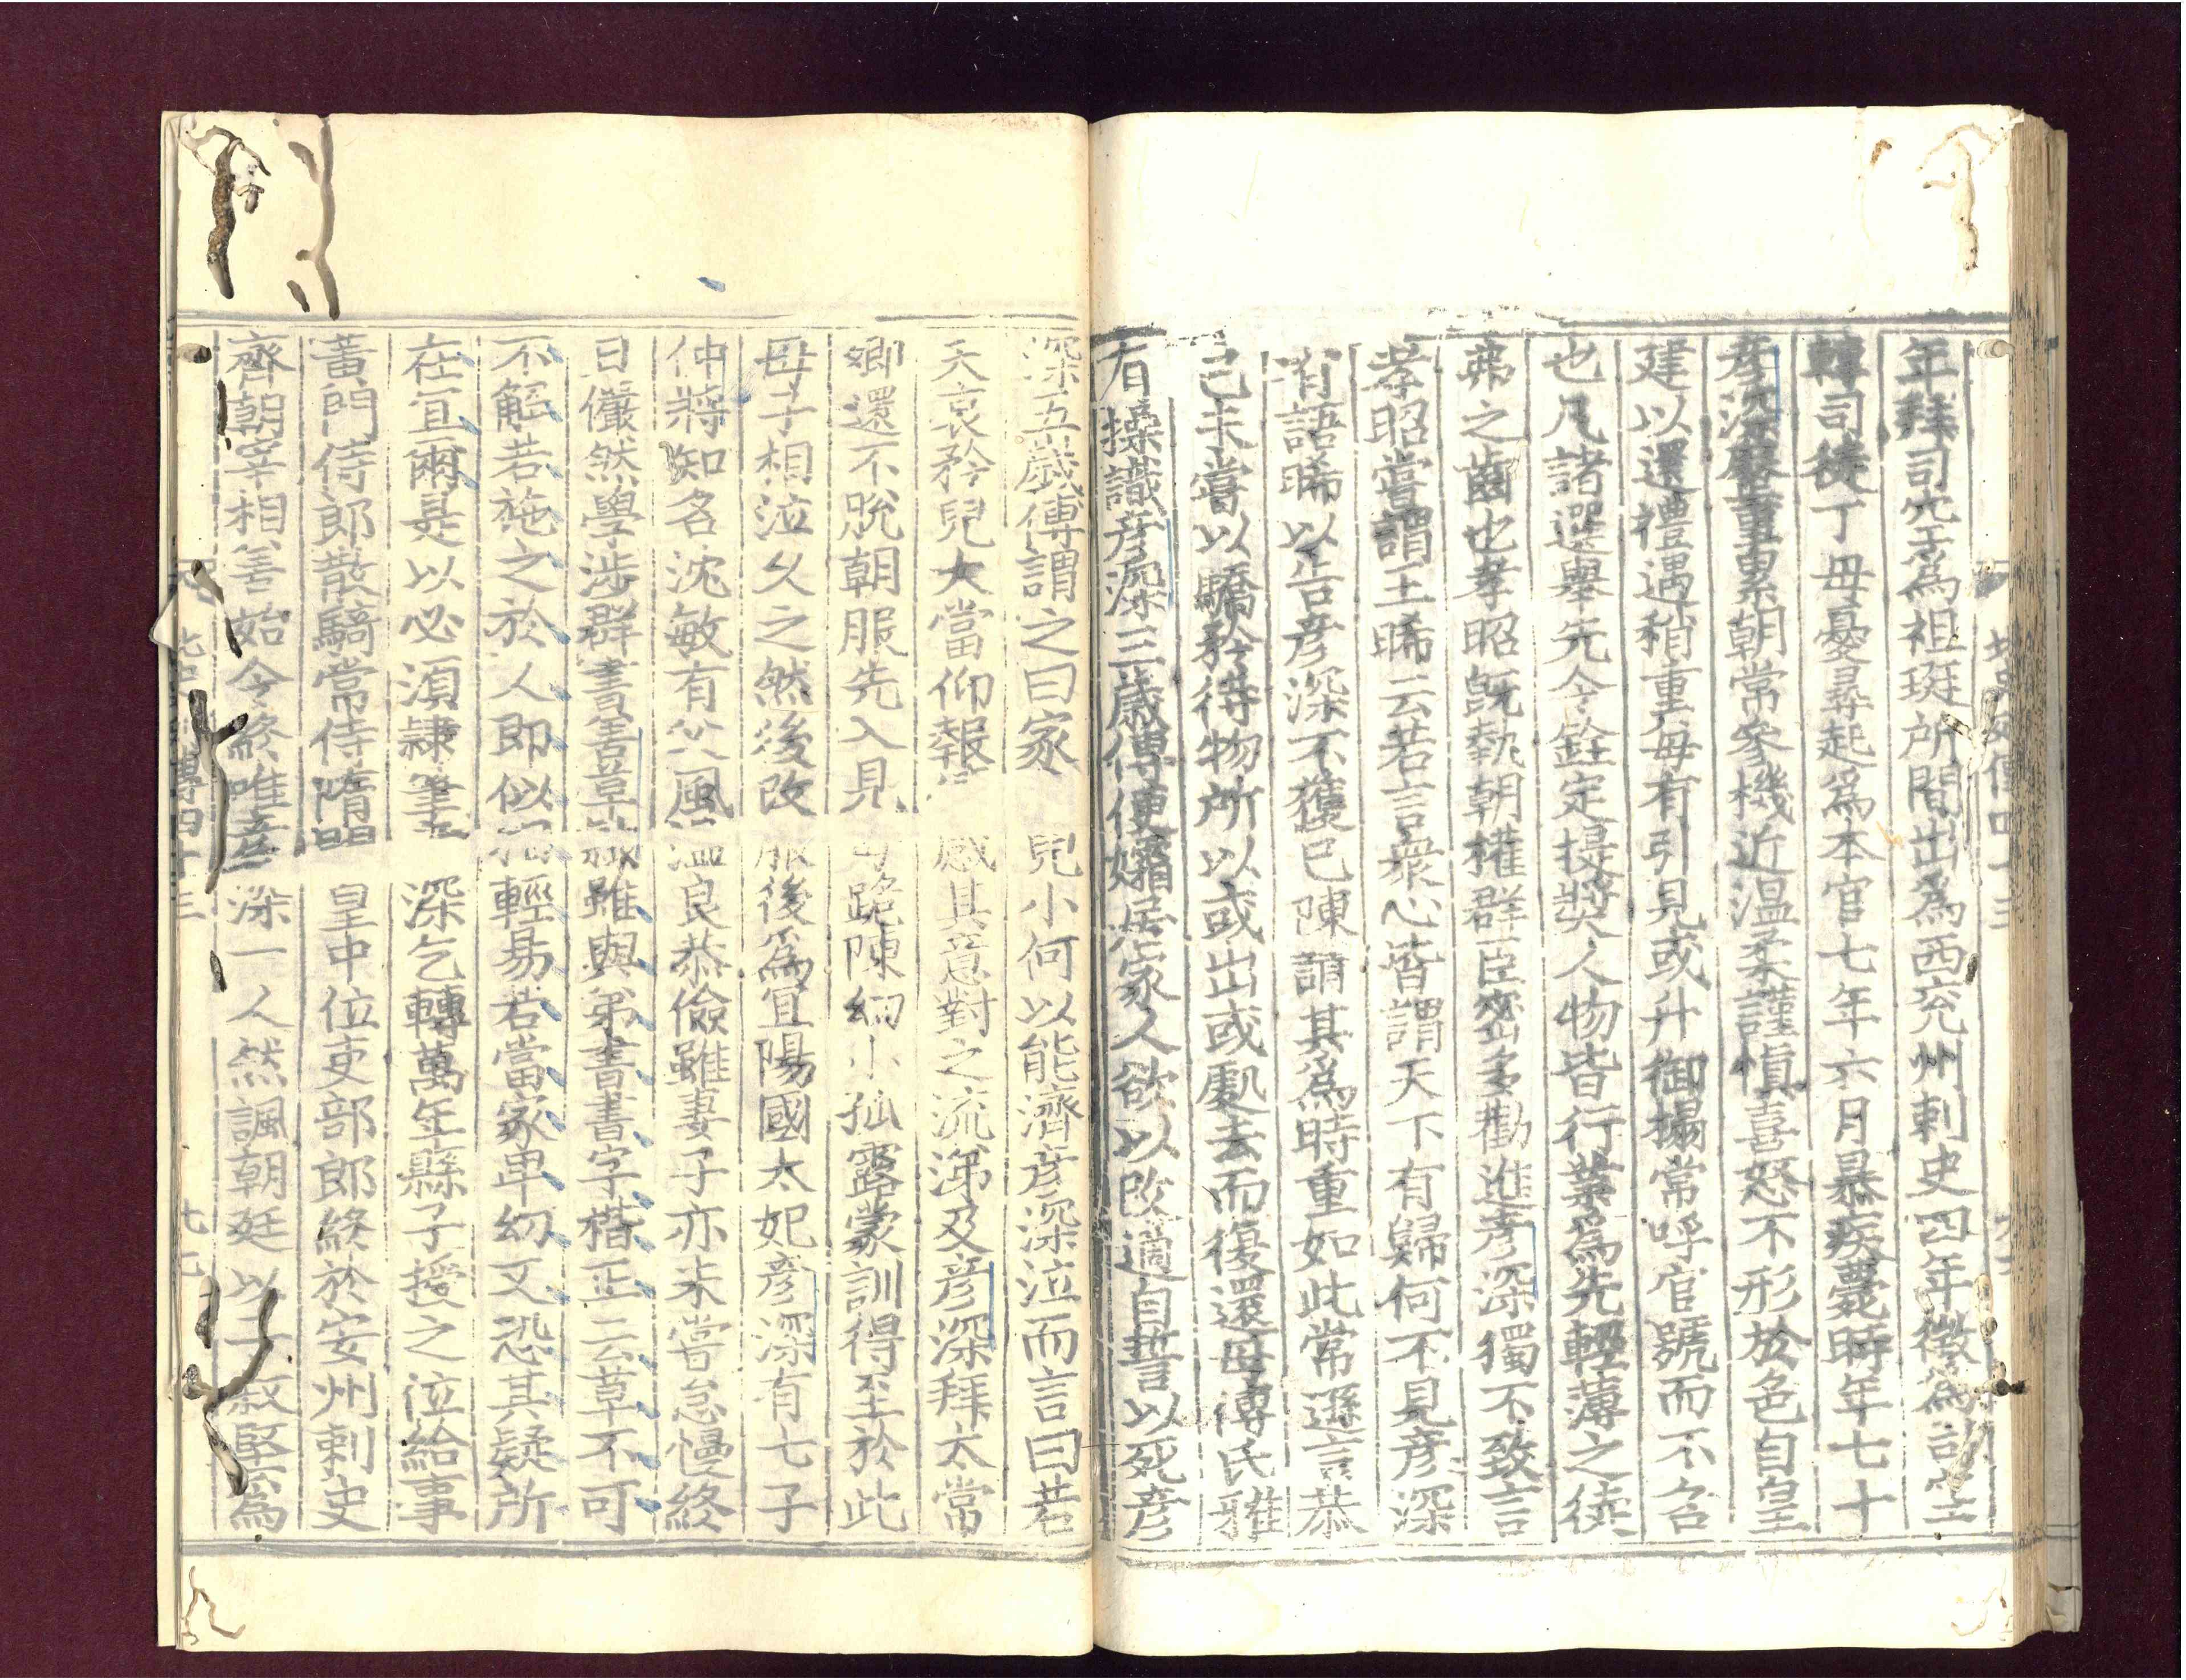 年拜司空爲祖珽所間出爲西兖州刺史四年徵爲司空
轉司徒丁母憂尋起爲本官七年六月暴疾薨時年七十
彦深歷事累朝常參機近溫柔謹慎喜怒不形於色自皇
建以還禮遇稍重每有引見或升御榻常呼官號而不名
也凡諸選舉先令銓定提奬人物皆行業爲先輕薄之徒
弗之齒也孝昭旣執朝權群臣密多勸進彦深獨不致言
孝昭嘗謂王晞云若言衆心皆謂天下有歸何不見彦深
有語晞以告彦深不獲已陳請其爲時重如此常遜言恭
己未嘗以驕矜待物所以或出或處去而復還母傅氏雅
有操識彦深三歲傅便孀居家人欲以改適自誓以死彦
深五歲傅謂之曰家 兒小何以能濟彦深泣而言曰若
天哀矜兒大當仰報 感其意對之流涕及彦深拜太常
卿還不脫朝服先入見 跪陳幼小孤露蒙訓得至於此
母子相泣久之然後改服後爲宜陽國太妃彦深有七子
仲將知名沈敏有父風溫良恭儉雖妻子亦未嘗怠慢終
日儼然學涉群書善草 雖與弟書書字楷正云草不可
不解若施之於人即似相輕易若當家卑幼又恐其疑所
在宜爾是以必須隷筆 深乞轉萬年縣子授之位給事
黃門侍郎散騎常侍隋開皇中位吏部郎終於安州剌史
齊朝宰相善始令終唯彦深一人然諷朝廷以子叔堅爲
傳四十三